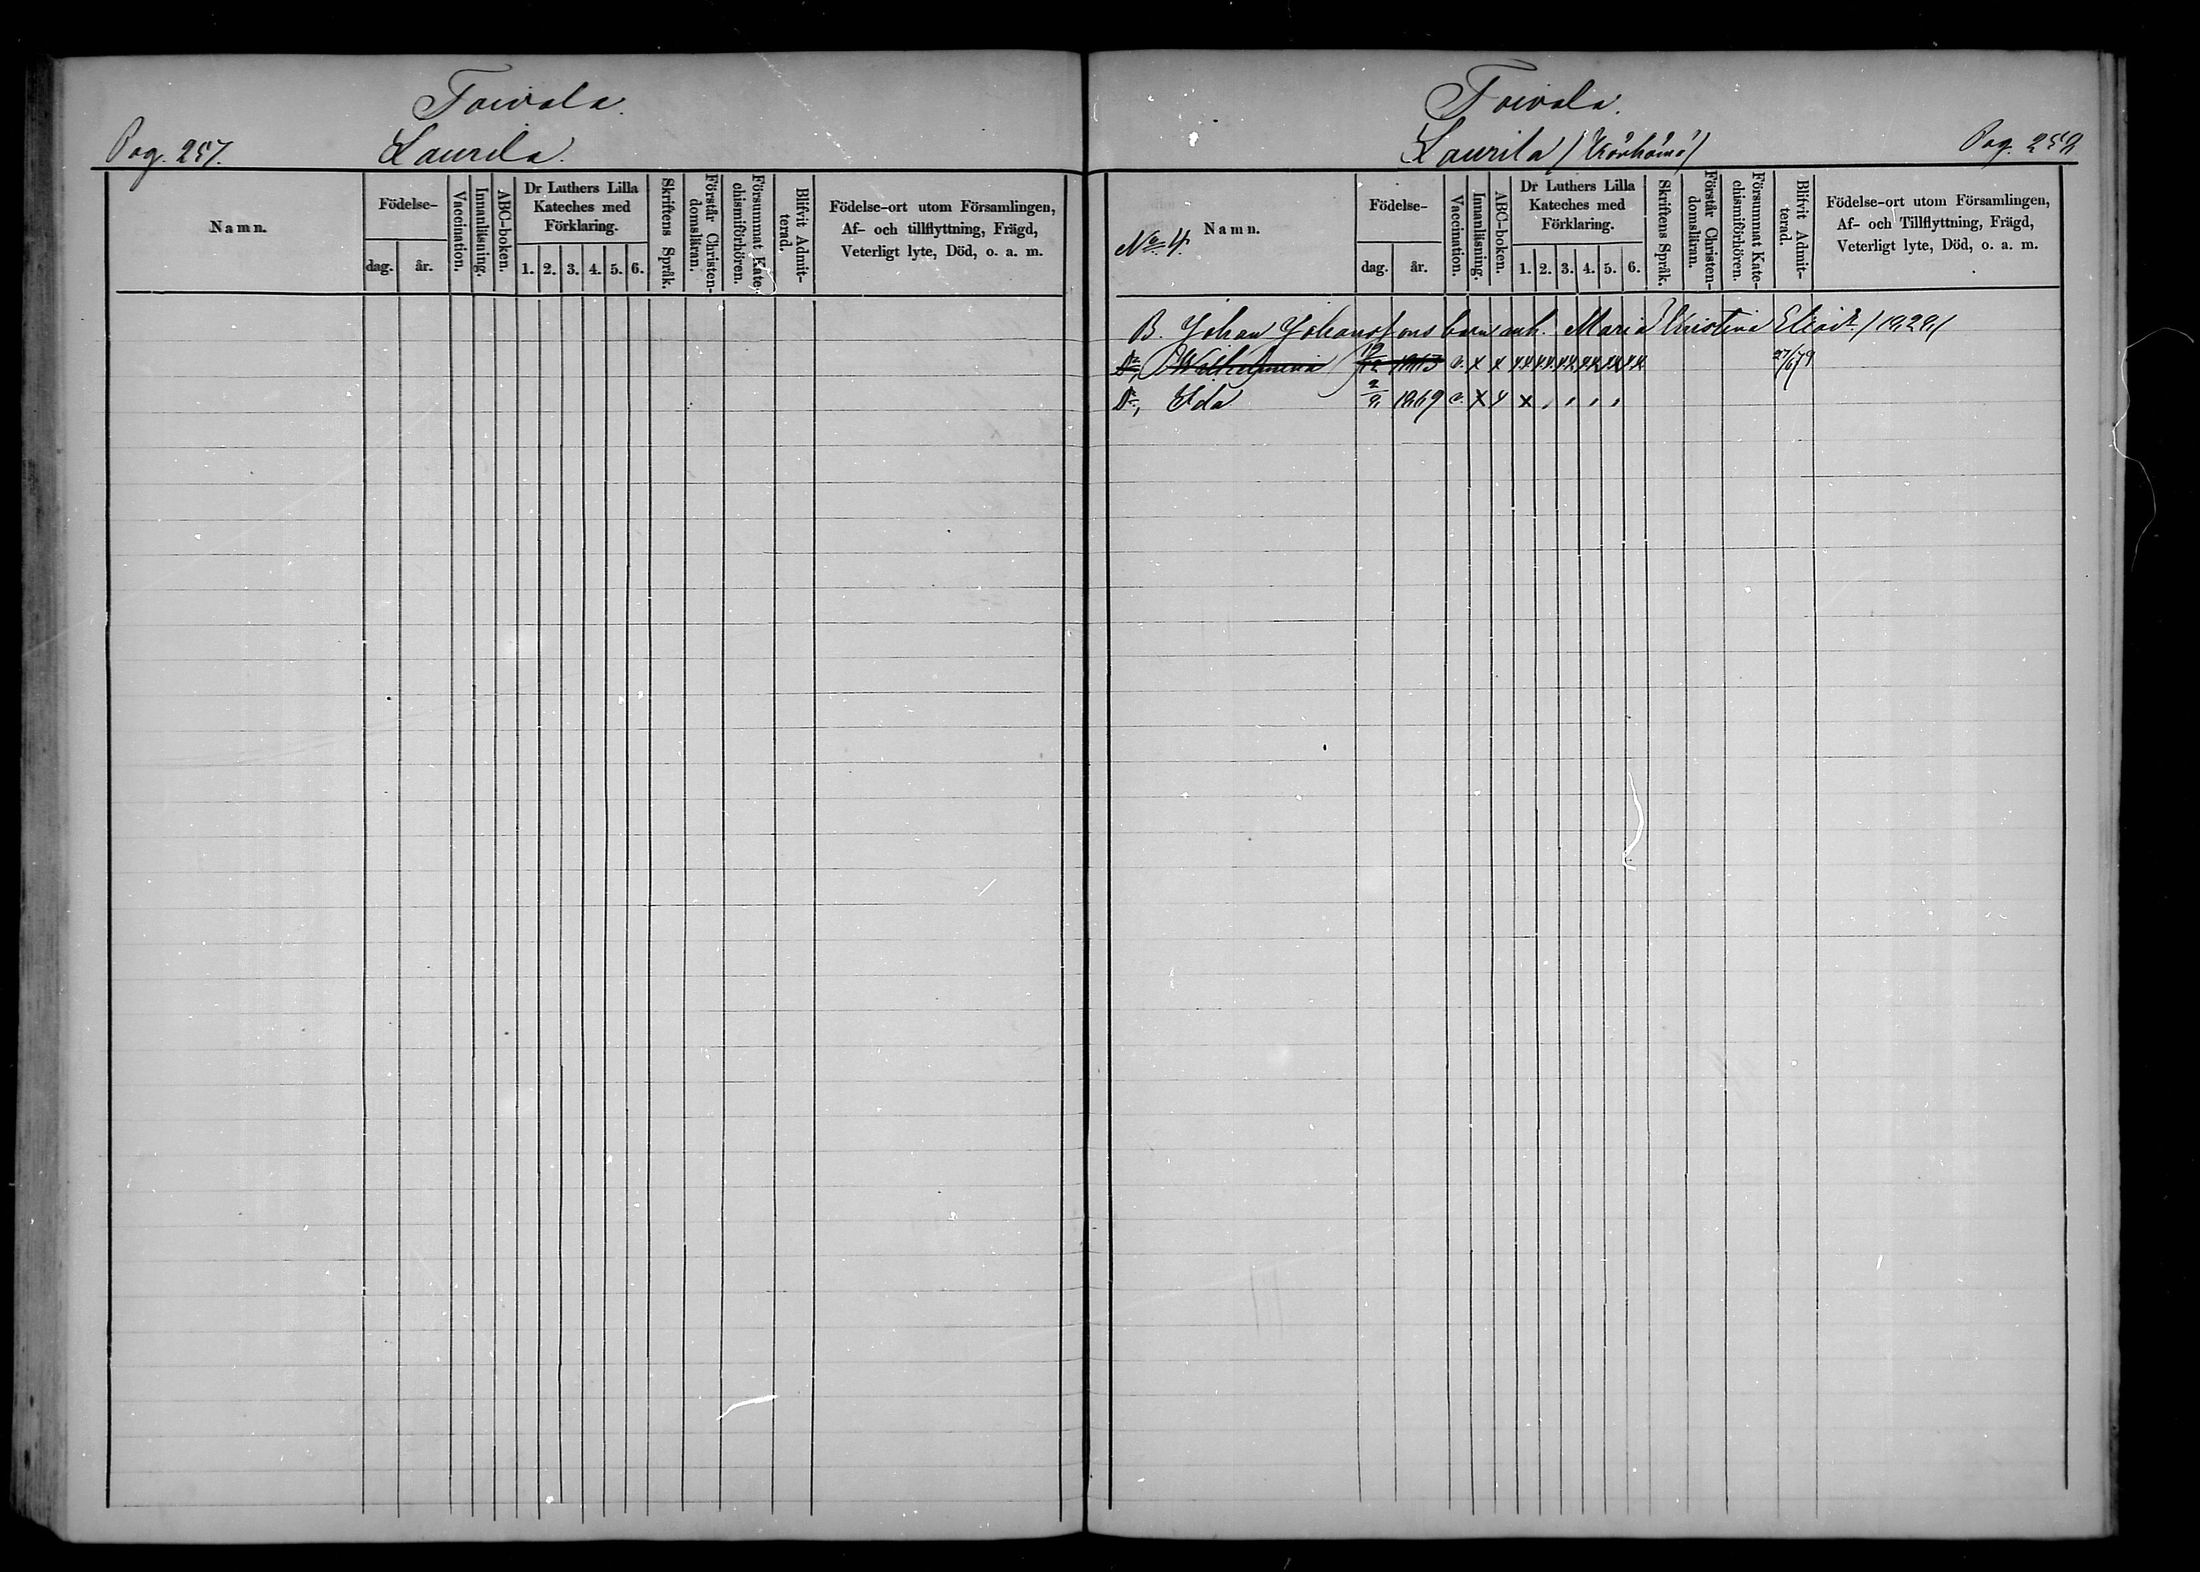 Toivola.
Pag. 257. Laurila.
Namn.
Födelse-
dag. år.
Vaccination.
Innanläsning.
ABC-boken.
Dr Luthers Lilla
Kateches med
Förklaring.
1. 2. 3. 4. 5. 6.
Skriftens Språk.
Förstår Christen-
domsläran.
Försummat Kate-
chismiförhören.
Blifvit Admit-
terad.
Födelse-ort utom Församlingen,
Af- och tillflyttning, Frägd,
Veterligt lyte, Död, o. a. m.
Toivola.
Laurila / Körkämö / Pag. 258
No 4. Namn.
Födelse-
dag. år.
Vaccination.
Innanläsning.
ABC-boken.
Dr Luthers Lilla
Kateches med
Förklaring.
1. 2. 3. 4. 5. 6.
Skriftens Språk.
Förstår Christen-
domsläran.
Försummat Kate-
chismiförhören.
Blifvit Admit-
terad.
Födelse-ort utom Församlingen,
Af- och Tillflyttning, Frägd,
Veterligt lyte, Död, o. a. m.
B. Johan Johanssons barn, enk. Maria Kristina /1829/
Dr, Wilhelmina 1863 v. x x xx xx xx xx xx xx
Dr, Ida 1869 v. x x x